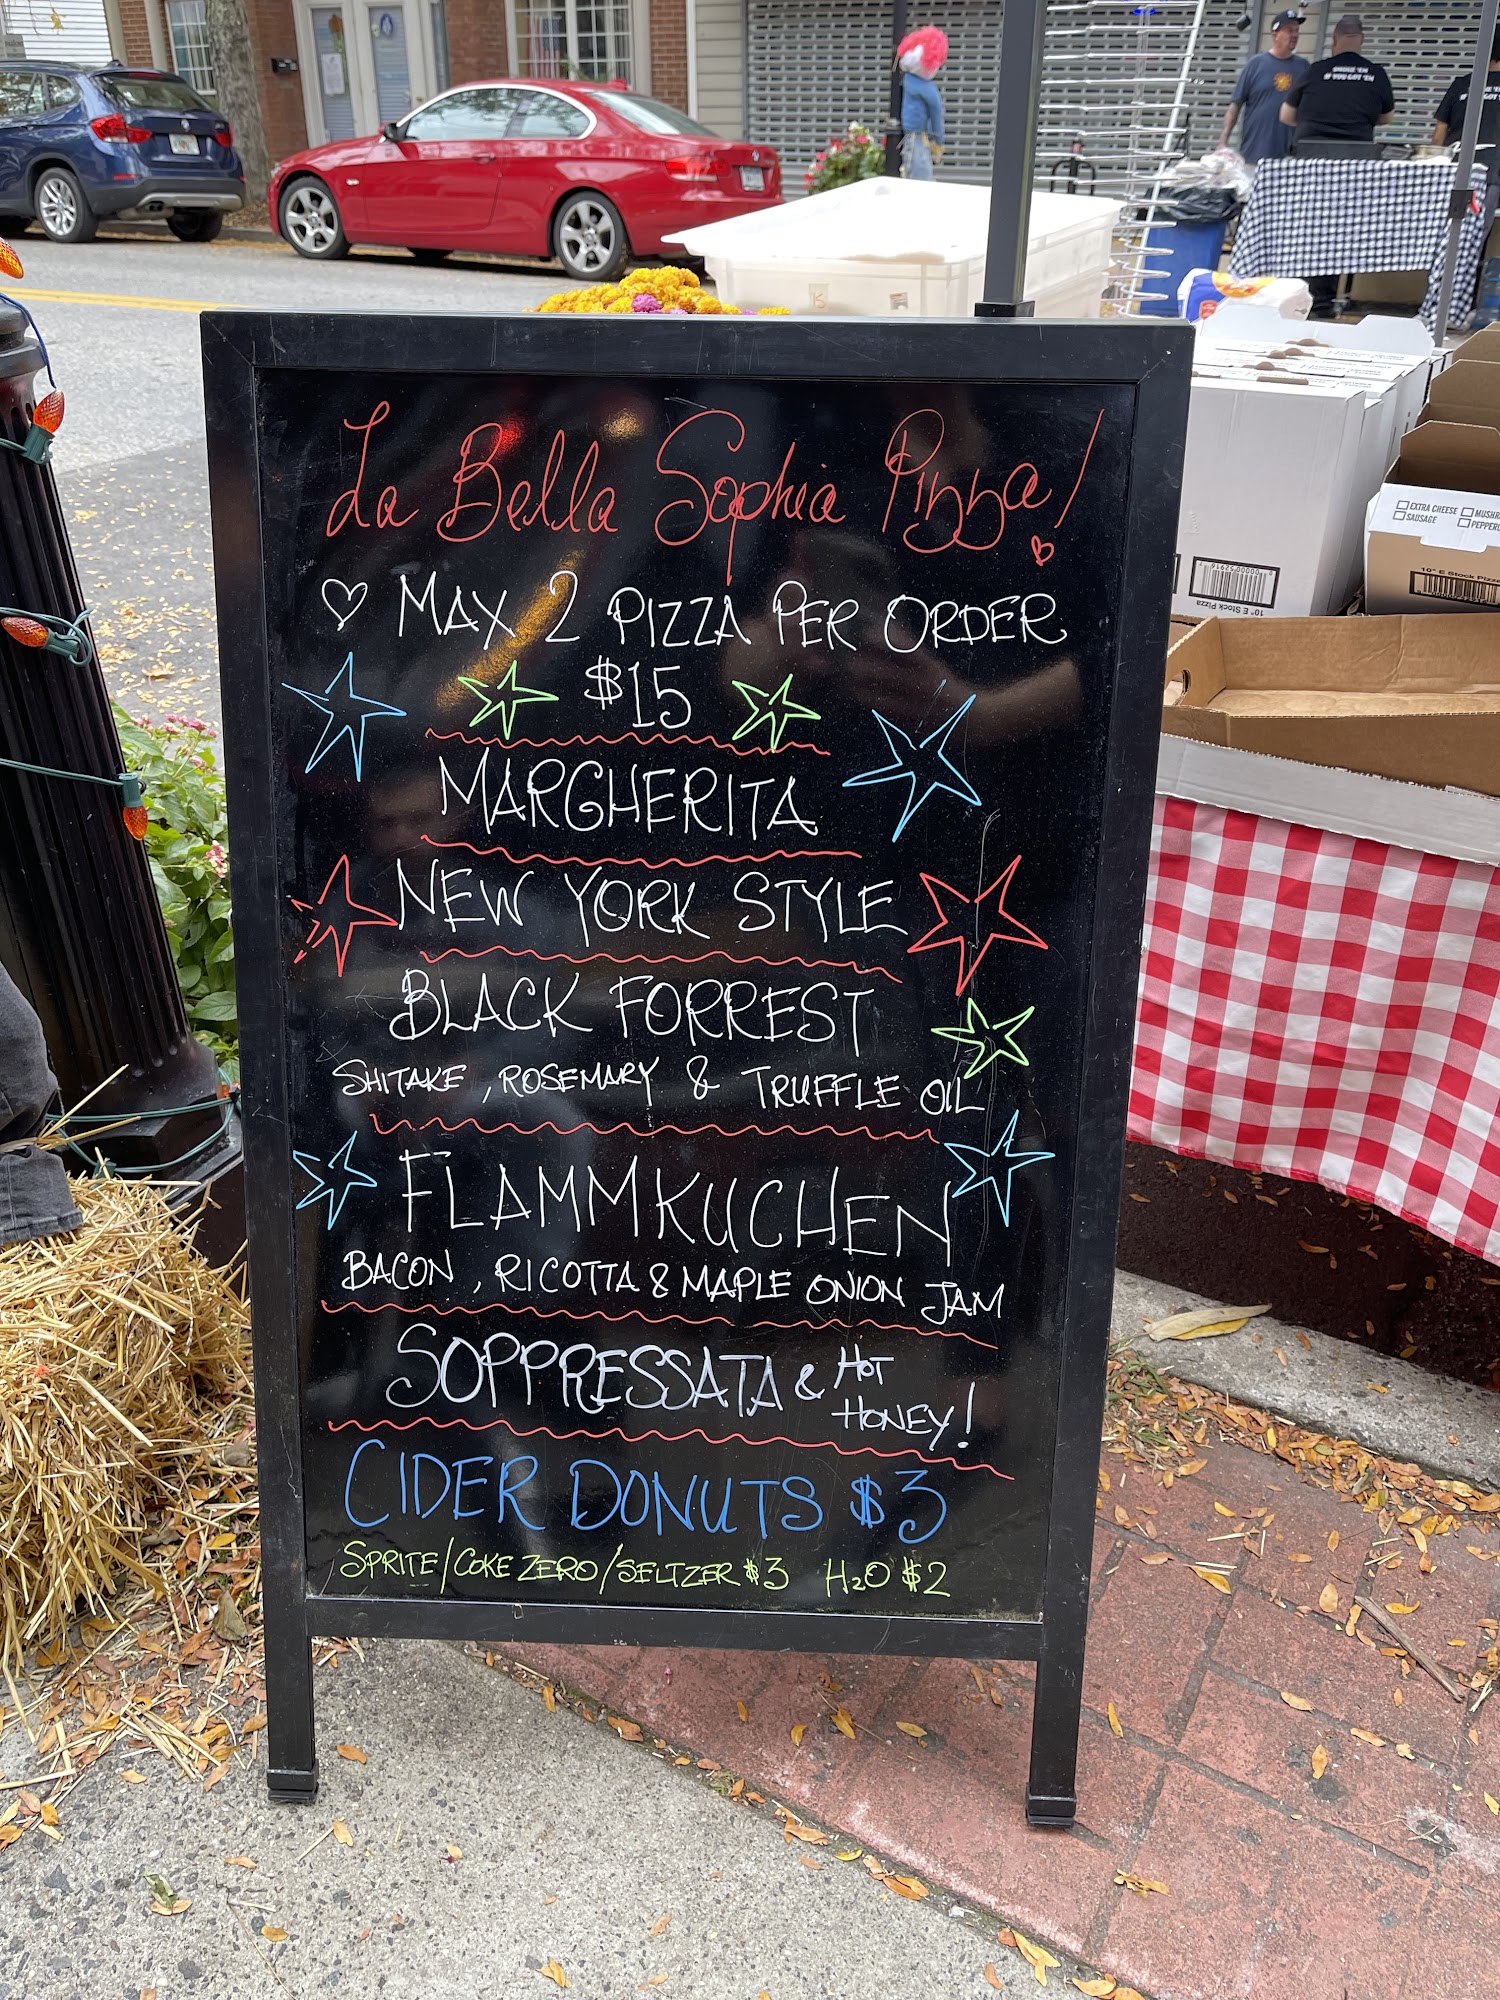 La Bella Sophia Pizza!
Max 2 PIZZA PER ORDER
$15
MARGHERITA
NEW YORK STYLE
BLACK FORREST
SHITAKE, ROSEMARY & TRUFFLE OIL
FLAMMKUCHEN
BACON, RICOTTA & MAPLE ONION JAM
SOPPRESSATA & HOT
HONEY!
CIDER DONUTS $3
SPRITE/COKE ZERO/SELTZER $3 H₂O $2
EXTRA CHEESE
SAUSAGE
10" E Stock Pizza
SMOKE 'EM
IF YOU GOT 'EM